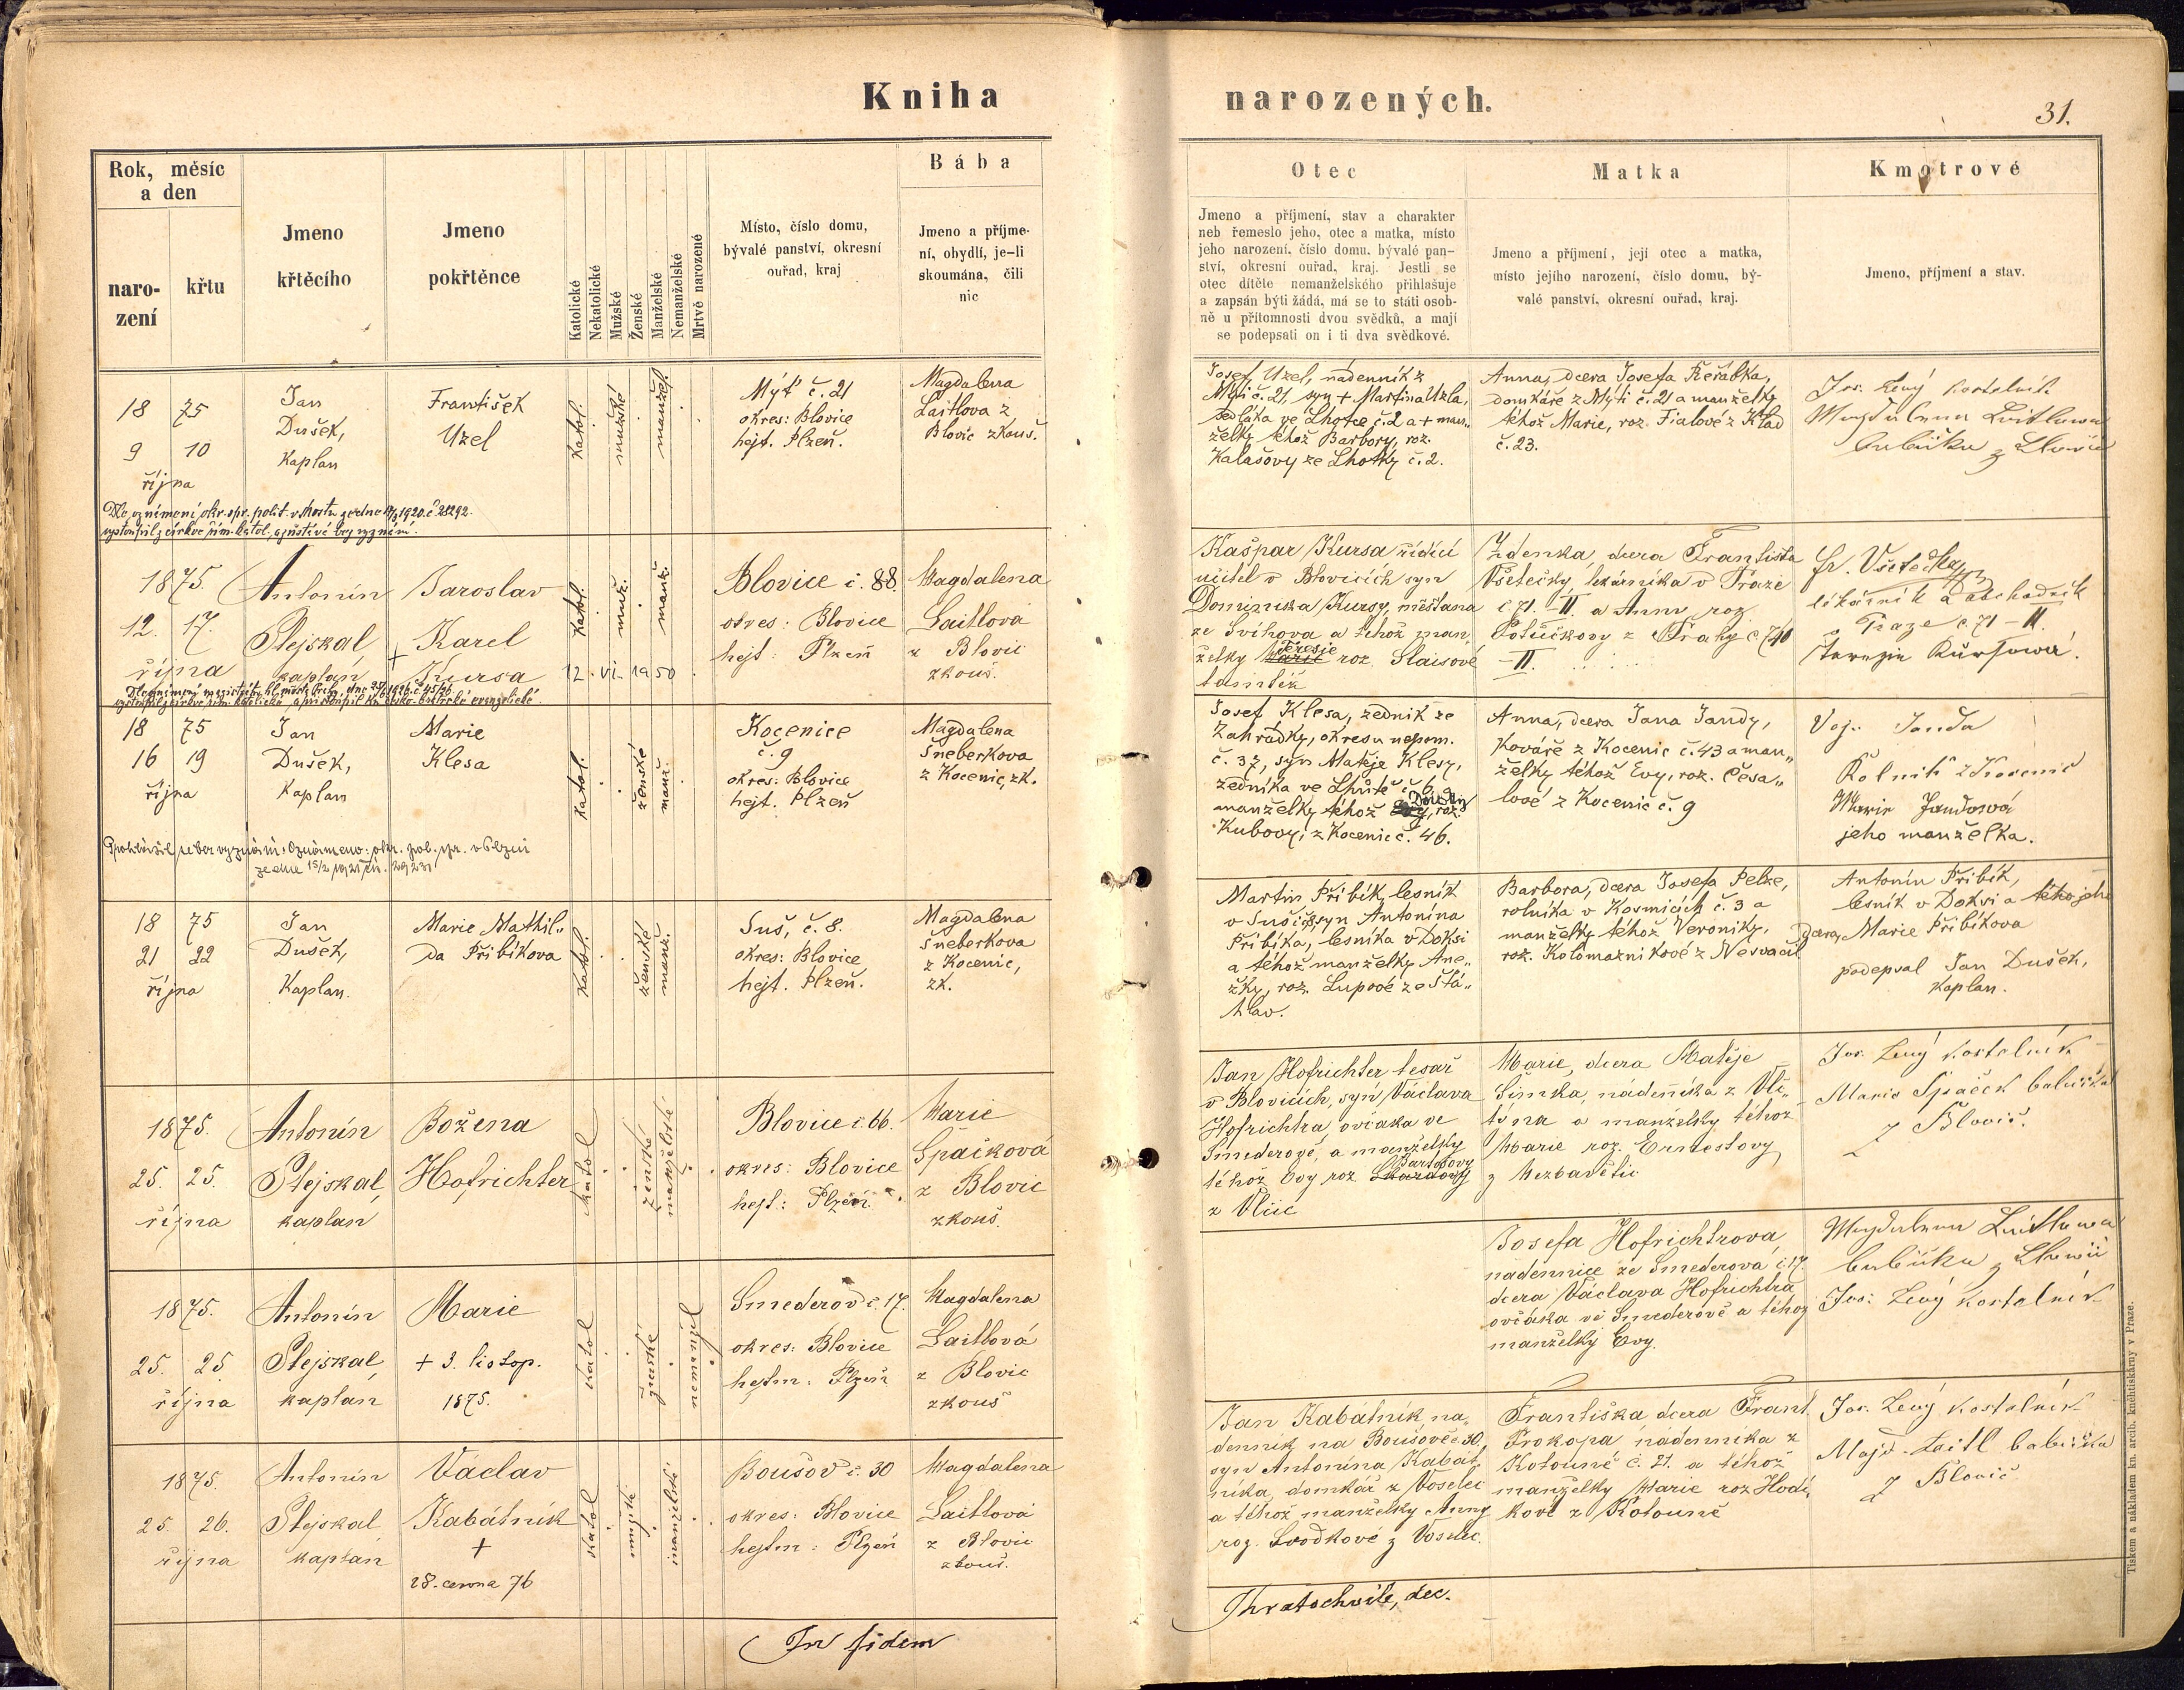 Kniha
narozených.
31.
Rok, měsíc
a den
naro-
zení
křtu
Jmeno
křtěcího
Jmeno
pokřtěnce
Katolické
Nekatolické
Mužské
Ženské
Manželské
Nemanželské
Mrtvě narozené
Místo, číslo domu,
bývalé panství, okresní
ouřad, kraj
Bába
Jmeno a příjme-
ní, obydlí, je-li
skoumána, čili
nic
Otec
Jmeno a příjmení, stav a charakter
neb řemeslo jeho, otec a matka, místo
jeho narození, číslo domu, bývalé pan-
ství, okresní ouřad, kraj. Jestli se
otec dítěte nemanželského přihlašuje
a zapsán býti žádá, má se to státi osob-
ně u přítomnosti dvou svědků, a mají
se podepsati on i ti dva svědkové.
Matka
Jmeno a příjmení, její otec a matka,
místo jejího narození, číslo domu, bý-
valé panství, okresní ouřad, kraj.
Kmotrové
Jmeno, příjmení a stav.
18 75
9 10
října
Jan
Dušek,
Kaplan
František
Uzel
Katol.
mužské
manžel.
Mýť č. 21
okres: Blovice
hejt. Plzeň.
Magdalena
Laitlova z
Blovic zkouš.
Josef Uzel, nádenník z
Mýti č. 21, syn + Martina Uzla,
sedláka ve Lhotce č. 2 a + man„
želky téhož Barbory, roz.
Kalašovy ze Lhotky č. 2.
Anna, dcera Josefa Řeřábka,
domkáře z Mýti č. 21 a manželky
téhož Marie, roz. Fialové z Klad
č. 23.
Jos. Levý kostelník
Magdalena Laitlowa
babička z Blowic
Dle oznámení okr. spr. polit. v Mostu ze dne 1920 č. 28292
vystoupil z církve řím. katol. a zůstává bez vyznání.
1875.
12. 17.
října
Antonín
Stejskal
kaplan
Jaroslav
Karel
+ Kursa
Katol.
muž.
manž.
12. VI. 1950
Blovice č. 88.
okres: Blovice
hejt: Plzeň
Magdalena
Laitlova
z Blovic
zkouš.
Kašpar Kursa řídící
učitel v Blovicích syn
Dominika Kursy, měšťana
ze Švihova a téhož man„
želky Marie Terezie roz. Slaisové
tamtéž
Zdenka, dcera Františka
Všetečky, lekárníka v Praze
č. 71.-II. a Anny roz.
Potůčkovy z Prahy č. 740
-II.
Fr. Všetečka
lékárník a obchodník
v Praze č. 71-II.
Terezie Kursowá.
18 75
16 19
října
Jan
Dušek,
Kaplan
Marie
Klesa
Katol.
ženské
manž.
Kocenice
č. 9
okres: Blovice
hejt. Plzeň
Magdalena
Šneberkova
z Kocenic, zk.
Josef Klesa, zedník ze
Zahrádky, okresu nepom.
č. 37, syn Matěje Klesy,
zedníka ve Lhůtě č. 6 a
manželky téhož Doroty, roz.
Kubovy, z Kocenic č. 46.
Anna, dcera Jana Jandy,
Kováře z Kocenic č. 43 a man„
želky téhož Evy, roz. Česa„
lové z Kocenic č. 9
Voj. Janda
Rolník z Kocenic
Marie Jandová
jeho manželka.
Prohlásil se bez vyznání. Oznámeno: okr. pol. spr. v Plzni
ze dne 15/2 1921 čís. 29231
18 75
21 22
října
Jan
Dušek,
Kaplan.
Marie Mathil„
da Přibíkova
Katol.
ženské
manž.
Suš, č. 8.
okres: Blovice
hejt. Plzeň.
Magdalena
Šneberkova
z Kocenic,
zk.
Martin Přibík, lesník
v Sušici, syn Antonína
Přibíka, lesníka v Doksi
a téhož manželky Ane„
žky, roz. Lupové ze Stá„
hlav.
Barbora, dcera Josefa Pelze,
rolníka v Kosmicích č. 3 a
manželky téhož Veroniky,
roz. Kolomazníkové z Nesvačil
Antonín Přibík,
lesník v Doksi a téhož jeho
dcera, Marie Přibíkova
podepsal Jan Dušek,
kaplan.
1875.
25. 25.
října
Antonín
Stejskal,
kaplan
Božena
Hofrichter
Katol
ženské
manželské
Blovice č. 66.
okres: Blovice
hejt: Plzeň.
Marie
Špačková
z Blovic
zkouš.
Jan Hofrichter tesař
v Blovicích, syn Václava
Hofrichtra, ovčáka ve
Smederově, a manželky
téhož Evy roz. Bartošovy
z Vlčic
Marie, dcera Matěje
Šimka, nádenníka z Vlč„
týna a manželky téhož
Marie roz. Ernestovy
z Mezbavětic
Jos. Levý kostelník
Marie Špaček babička
z Blovic.
1875.
25. 25.
října
Antonín
Stejskal,
kaplan
Marie
+ 3. listop.
1875.
Katol
ženské
nemanžel
Smederov č. 17.
okres: Blovice
hejtm: Plzeň
Magdalena
Laitlová
z Blovic
zkouš
Josefa Hofrichtrova
nádennice ze Smederova č. 17.
dcera Václava Hofrichtra
ovčáka ve Smederově a téhož
manželky Evy.
Magdalena Laitlowa
babička z Blowic
Jos: Levý kostelník
1875.
25. 26.
října
Antonín
Stejskal
kaplan
Václav
Kabátník
+
28. června 76
Katol
mužské
manželské
Boušov č. 30
okres: Blovice
hejtm: Plzeň
Magdalena
Laitlová
z Blovic
zkouš.
Jan Kabátník, na„
denník na Boušově č. 30.
syn Antonína Kabát„
níka, domkář z Voselec
a téhož manželky Anny
roz. Svodkové z Voselec.
Františka dcera Frant.
Prokopa nádenníka z
Kotouně č. 21. a téhož
manželky Marie roz. Hodi„
kové z Kotouně
Jos. Levý kostelník
Majd. Laitl babička
z Blovic
In fidem
Chratochvile, dec.
Tiskem a nákladem kn. arcib. knihtiskárny v Praze.